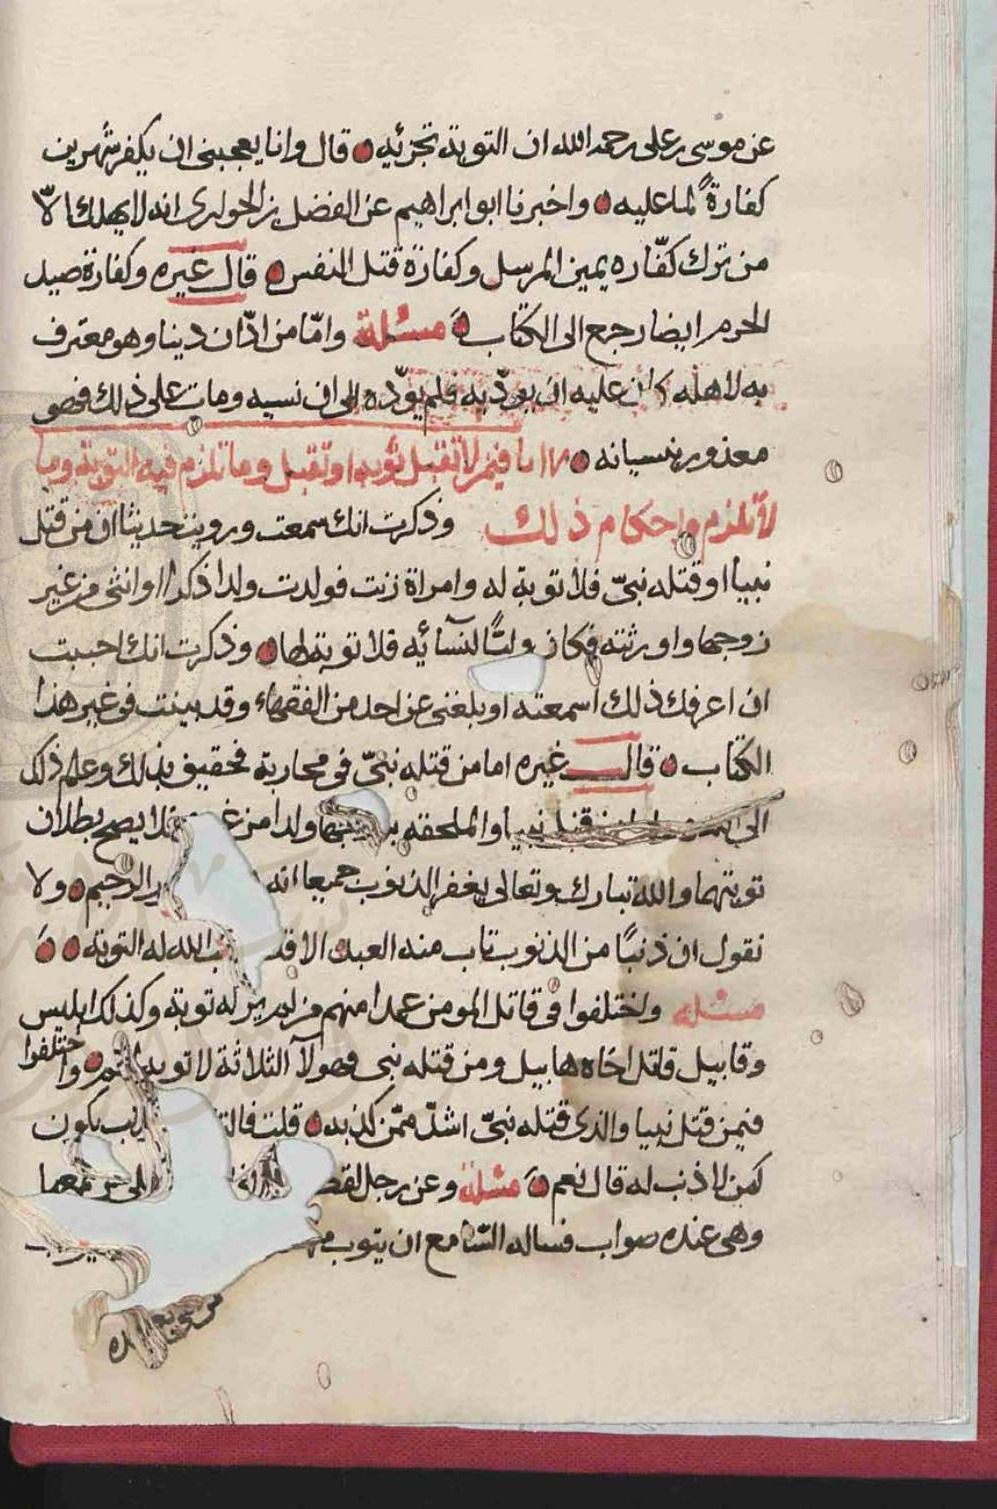 عن موسى بن على رحمه الله ان التوبة تجزئه قال وانا يعجبنى ان يكفر شهرين
كفارةً لما عليه واخبرنا ابو ابراهيم عن الفضل بن الحوارى انه لا يهلك الّا
من ترك كفّاره يمين المرسل وكفارة قتل النفس قال غيره وكفارة صيد
الحرم ايضا رجع الى الكتاب مسئلة وامّا من ادّان دينا وهو معترف
به لاهله كان عليه ان يودّيه فلم يودّه الى ان نسيه ومات على ذلك فهو
معذور بنسيانه فيمن لا تقبل توبته او تقبل وما تلزم فيه التوبة وما
لا تلزم واحكام ذلك وذكرت انك سمعت ورويت حديثا ان من قتل
نبيا او قتله نبىّ فلا توبة له وامراة زنت فولدت ولدا ذكرا او انثى من غير
زوجها واورثته فكان لنسائه فلا توبة لها وذكرت انك احببت
ان اعرفك ذلك اسمعته او بلغنى عن احد من الفقهاء وقد بينت فى غير هذا
الكتاب قال غيره اما من قتله نبىّ فى محاربة فحقيق بذلك وعلم ذلك
الى الله قتل نبيا والملحقه ولدا من لا يصح بطلان
توبتهما والله تبارك وتعالى يغفر الذنوب جميعا انه الرحيم ولا
نقول ان ذنبًا من الذنوب تاب منه العبد الا الله له التوبة
مسئله واختلفوا فى قاتل المومن عمدا منهم من لم ير له توبة وكذلك ابليس
وقابيل قاتل اخاه هابيل ومن قتله نبى فهولآ الثلاثة لا توبة لهم واختلفوا
فيمن قتل نبيا والذى قتله نبىّ اشدّ ممّن كذبه قلت يكون
كمن لا ذنب له قال نعم مسئلة وعن رجل
وهى عنده صواب فساله السامع ان يتوب